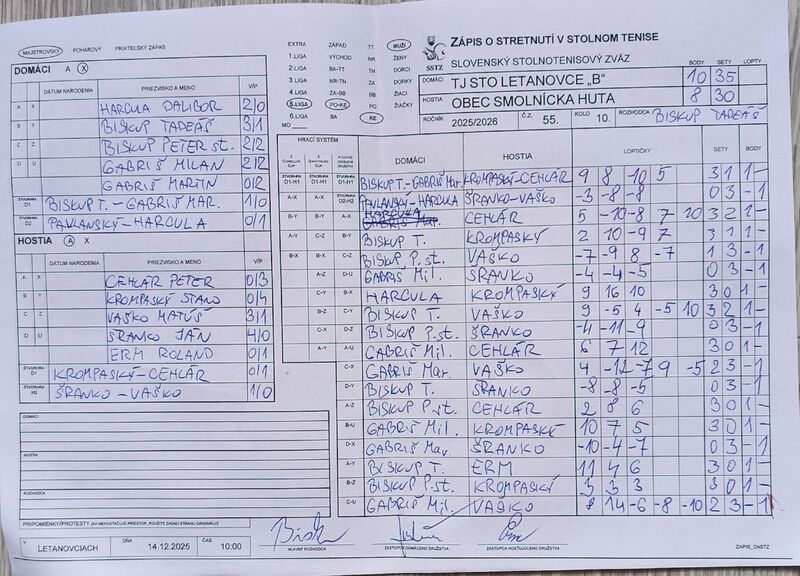 MAJSTROVSKÝ POHÁROVÝ PRIATEĽSKÝ ZÁPAS
EXTRA ZÁPAD TT MUŽI
1.LIGA VÝCHOD NR ŽENY
2.LIGA BA-TT TN DORCI
3.LIGA NR-TN ZA DORKY
4.LIGA ZA-BB BB ŽIACI
5.LIGA PO-KE PO ŽIAČKY
6.LIGA BA KE
MO
SSTZ
ZÁPIS O STRETNUTÍ V STOLNOM TENISE
SLOVENSKÝ STOLNOTENISOVÝ ZVÄZ BODY SETY LOPTY
DOMÁCI TJ STO LETANOVCE „B" 10 35
HOSTIA OBEC SMOLNÍCKA HUTA 8 30
ROČNÍK 2025/2026 Č.Z. 55. KOLO 10. ROZHODCA BISKUP TADEÁŠ
DOMÁCI A X
DÁTUM NARODENIA PRIEZVISKO A MENO V/P
A X HARCULA DALIBOR 2/0
B Y BISKUP TADEÁŠ 3/1
C Z BISKUP PETER st. 2/2
D U GABRIŠ MILAN 2/2
GABRIŠ MARTIN 0/2
ŠTVORHRA D1 BISKUP T. - GABRIŠ MAR. 1/0
ŠTVORHRA D2 PAVLANSKÝ - HARCULA 0/1
HOSTIA A X
DÁTUM NARODENIA PRIEZVISKO A MENO V/P
A X CEHLÁR PETER 0/3
B Y KROMPASKÝ STANO 0/4
C Z VAŠKO MATÚŠ 3/1
D U ŠRANKO JÁN 4/0
ERM ROLAND 0/1
ŠTVORHRA D1 KROMPASKÝ - CEHLÁR 0/1
ŠTVORHRA H2 ŠRANKO - VAŠKO 1/0
HRACÍ SYSTÉM DOMÁCI HOSTIA LOPTIČKY SETY BODY
D1-H1 D1-H1 D1-H1 BISKUP T. - GABRIŠ Mar. KROMPASKÝ - CEHLÁR 9 8 -10 5 3 1 1 -
A-X A-X D2-H2 PAVLANSKÝ - HARCULA ŠRANKO - VAŠKO -3 -8 -8 0 3 - 1
B-Y B-Y A-X HARCULA CEHLÁR 5 -10 -8 7 10 3 2 1 -
A-Y C-Z B-Y BISKUP T. KROMPASKÝ 2 10 -9 7 3 1 1 -
B-X B-X C-Z BISKUP P. st. VAŠKO -7 -9 8 -7 1 3 - 1
A-Z D-U GABRIŠ Mil. ŠRANKO -4 -4 -5 0 3 - 1
C-Y B-X HARCULA KROMPASKÝ 9 16 10 3 0 1 -
B-Z C-Y BISKUP T. VAŠKO 9 -5 4 -5 10 3 2 1 -
C-X D-Z BISKUP P. st. ŠRANKO -4 -11 -9 0 3 - 1
A-Y A-U GABRIŠ Mil. CEHLÁR 6 7 12 3 0 1 -
C-X GABRIŠ Mar. VAŠKO 4 -12 -7 9 -5 2 3 - 1
D-Y BISKUP T. ŠRANKO -8 -8 -5 0 3 - 1
A-Z BISKUP P. st. CEHLÁR 2 8 6 3 0 1 -
B-U GABRIŠ Mil. KROMPASKÝ 10 7 5 3 0 1 -
D-X GABRIŠ Mar. ŠRANKO -10 -4 -7 0 3 - 1
A-Y BISKUP T. ERM 11 4 6 3 0 1 -
B-Z BISKUP P. st. KROMPASKÝ 3 3 3 3 0 1 -
C-U GABRIŠ Mil. VAŠKO 8 14 -6 -8 -10 2 3 - 1
DOMÁCI
HOSTIA
ROZHODCA
PRIPOMIENKY/PROTESTY (AK NEPOSTAČUJE PRIESTOR, POUŽITE ZADNÚ STRANU ORIGINÁLU)
V LETANOVCIACH DŇA 14.12.2025 ČAS 10:00
HLAVNÝ ROZHODCA ZÁSTUPCA DOMÁCEHO DRUŽSTVA ZÁSTUPCA HOSŤUJÚCEHO DRUŽSTVA
ZAPIS_OsSTZ